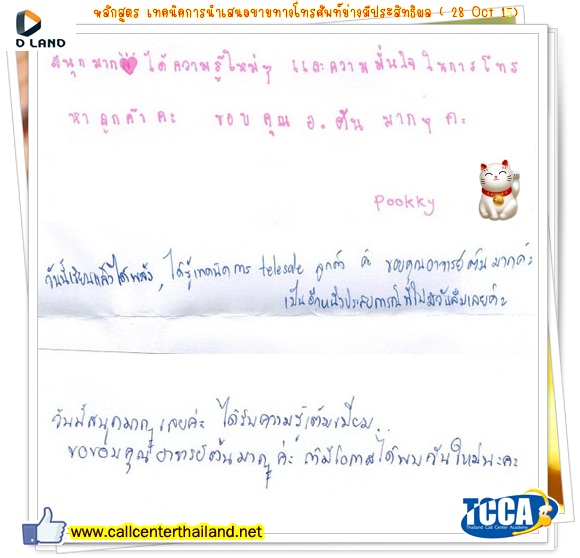 หลักสูตร เทคนิคการนำเสนอขายทางโทรศัพท์อย่างมีประสิทธิผล ( 28 Oct 15)
D LAND
สนุกมาก ได้ความรู้ใหม่ๆ และความมั่นใจในการโทร
หาลูกค้าคะ ขอบคุณ อ.ต้น มากๆ คะ
Pookky
วันนี้เรียนแล้วได้พลัง, ได้รู้เทคนิคการ telesale ลูกค้า ค่ะ ขอบคุณอาจารย์ต้นมากค่ะ
เป็นอีกหนึ่งประสบการณ์ที่ไม่มีวันลืมเลยค่ะ
วันนี้สนุกมากๆ เลยค่ะ ได้รับความรู้เต็มเปี่ยม..
ขอขอบคุณอาจารย์ต้นมากๆ ค่ะ ถ้ามีโอกาสได้พบกันใหม่นะคะ
www.callcenterthailand.net
TCCA
Thailand Call Center Academy